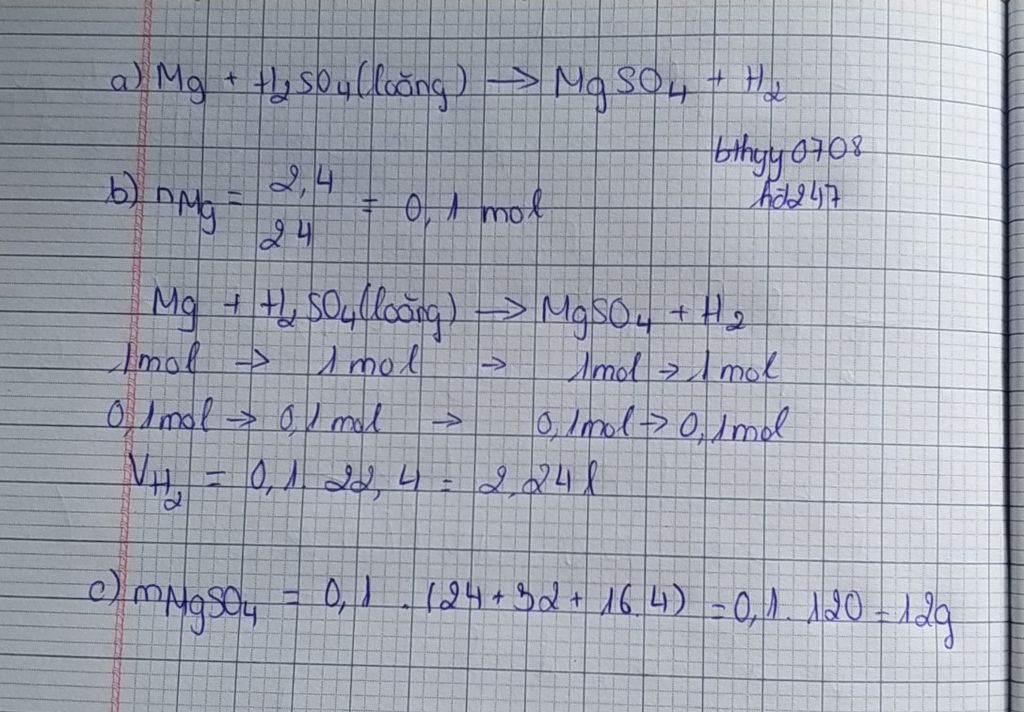 a) Mg + H₂SO₄(loãng) → MgSO₄ + H₂
bthyy0708
hd247
b) nMg = 2,4/24 = 0,1 mol
Mg + H₂SO₄(loãng) → MgSO₄ + H₂
1mol → 1mol → 1mol → 1mol
0,1mol → 0,1mol → 0,1mol → 0,1mol
VH₂ = 0,1. 22,4 = 2,24l
c) mMgSO₄ = 0,1 . (24+32+16.4) = 0,1. 120 = 12g